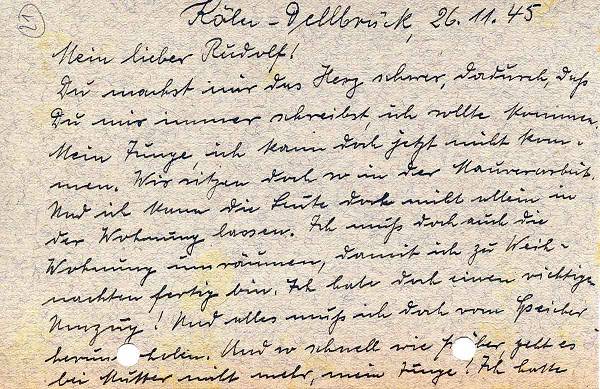 21
Köln-Dellbrück, 26.11.45
Mein lieber Rudolf!
Du machst mir das Herz schwer, dadurch, daß
Du mir immer schreibst, ich sollte kommen.
Mein Junge, ich kann doch jetzt nicht kom-
men. Wir sitzen doch so in der Maurerarbeit.
Und ich kann die Leute doch nicht allein in
der Wohnung lassen. Ich muß doch auch die
Wohnung umräumen, damit ich zu Weih-
nachten fertig bin. Ich habe doch einen richtigen
Umzug! Und alles muß ich doch vom Speicher
herunterholen. Und so schnell wie früher geht es
bei Mutter nicht mehr, mein Junge! Ich hatte